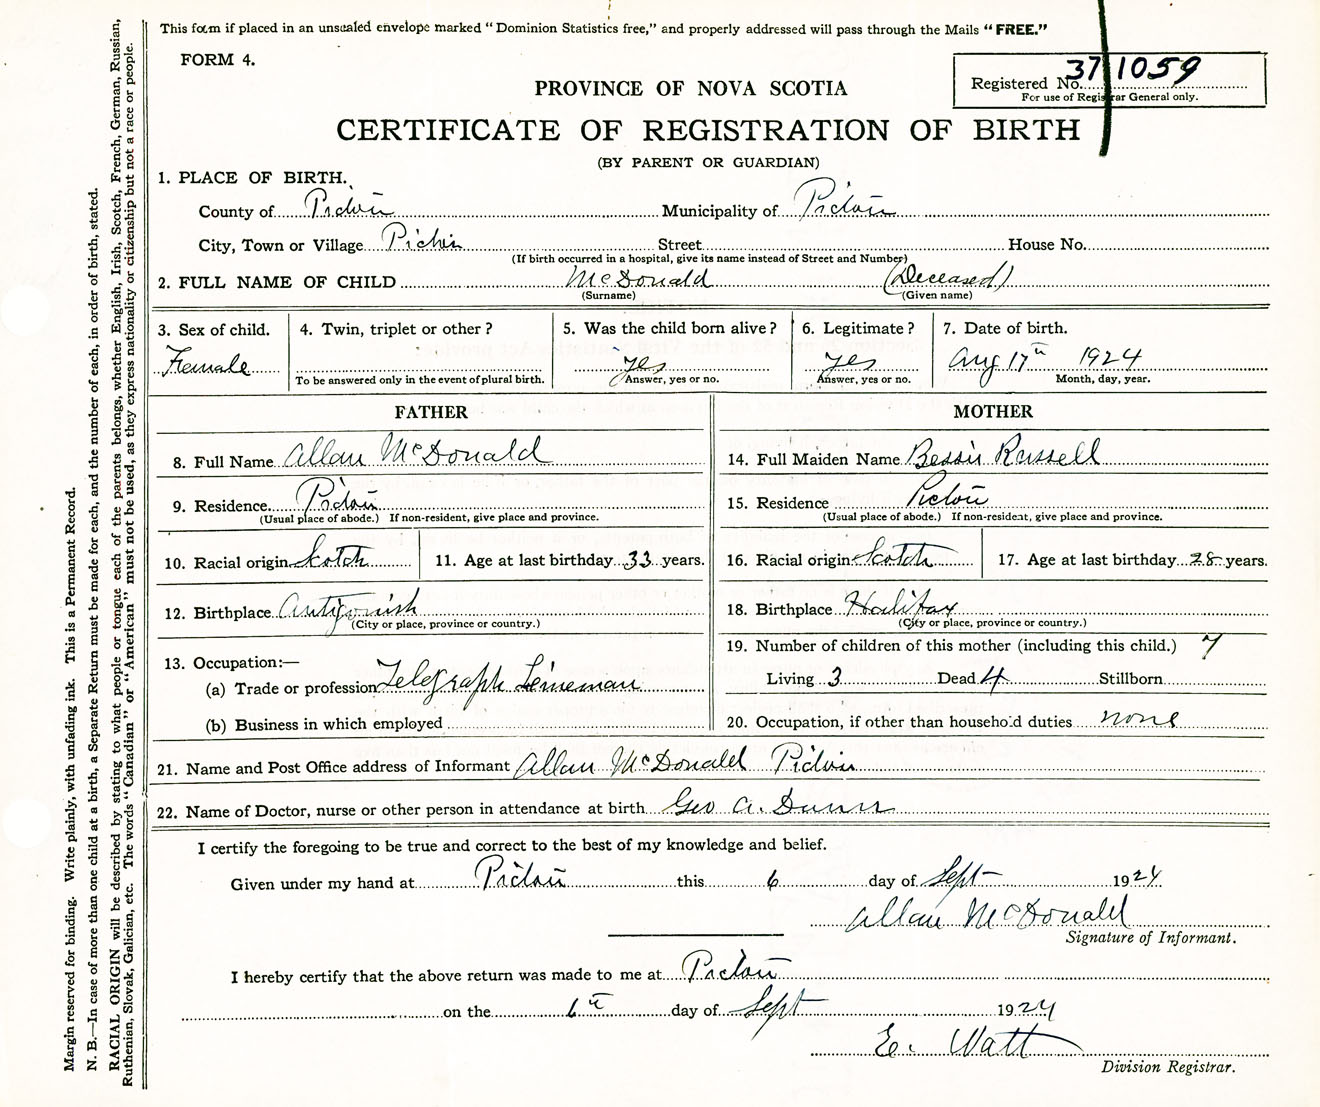 This form if placed in an unsealed envelope marked "Dominion Statistics free," and properly addressed will pass through the Mails "FREE."
FORM 4.
Registered No. 37 1059
For use of Registrar General only.
PROVINCE OF NOVA SCOTIA
CERTIFICATE OF REGISTRATION OF BIRTH
(BY PARENT OR GUARDIAN)
1. PLACE OF BIRTH.
County of Pictou Municipality of Pictou
City, Town or Village Pictou Street House No.
(If birth occurred in a hospital, give its name instead of Street and Number)
2. FULL NAME OF CHILD McDonald (Deceased)
(Surname) (Given name)
3. Sex of child. 4. Twin, triplet or other? 5. Was the child born alive? 6. Legitimate? 7. Date of birth.
Female yes yes Aug 17th 1924
To be answered only in the event of plural birth. Answer, yes or no. Answer, yes or no. Month, day, year.
FATHER
8. Full Name Allan McDonald
9. Residence. Pictou
(Usual place of abode.) If non-resident, give place and province.
10. Racial origin Scotch 11. Age at last birthday 33 years.
12. Birthplace Antigonish
(City or place, province or country.)
13. Occupation:—
(a) Trade or profession Telegraph Lineman
(b) Business in which employed
MOTHER
14. Full Maiden Name Bessie Russell
15. Residence Pictou
(Usual place of abode.) If non-resident, give place and province.
16. Racial origin Scotch 17. Age at last birthday 28 years.
18. Birthplace Halifax
(City or place, province or country.)
19. Number of children of this mother (including this child.) 7
Living 3 Dead 4 Stillborn
20. Occupation, if other than household duties none
21. Name and Post Office address of Informant Allan McDonald Pictou
22. Name of Doctor, nurse or other person in attendance at birth Geo A. Dunn
I certify the foregoing to be true and correct to the best of my knowledge and belief.
Given under my hand at Pictou this 6 day of Sept 1924
Allan McDonald
Signature of Informant.
I hereby certify that the above return was made to me at Pictou
on the 6th day of Sept 1924
E. Watt
Division Registrar.
Margin reserved for binding. Write plainly, with unfading ink. This is a Permanent Record.
N. B.—In case of more than one child at a birth, a Separate Return must be made for each, and the number of each, in order of birth, stated.
RACIAL ORIGIN will be described by stating to what people or tongue each of the parents belongs, whether English, Irish, Scotch, French, German, Russian,
Ruthenian, Slovak, Galician, etc. The words "Canadian" or "American" must not be used, as they express nationality or citizenship but not a race or people.